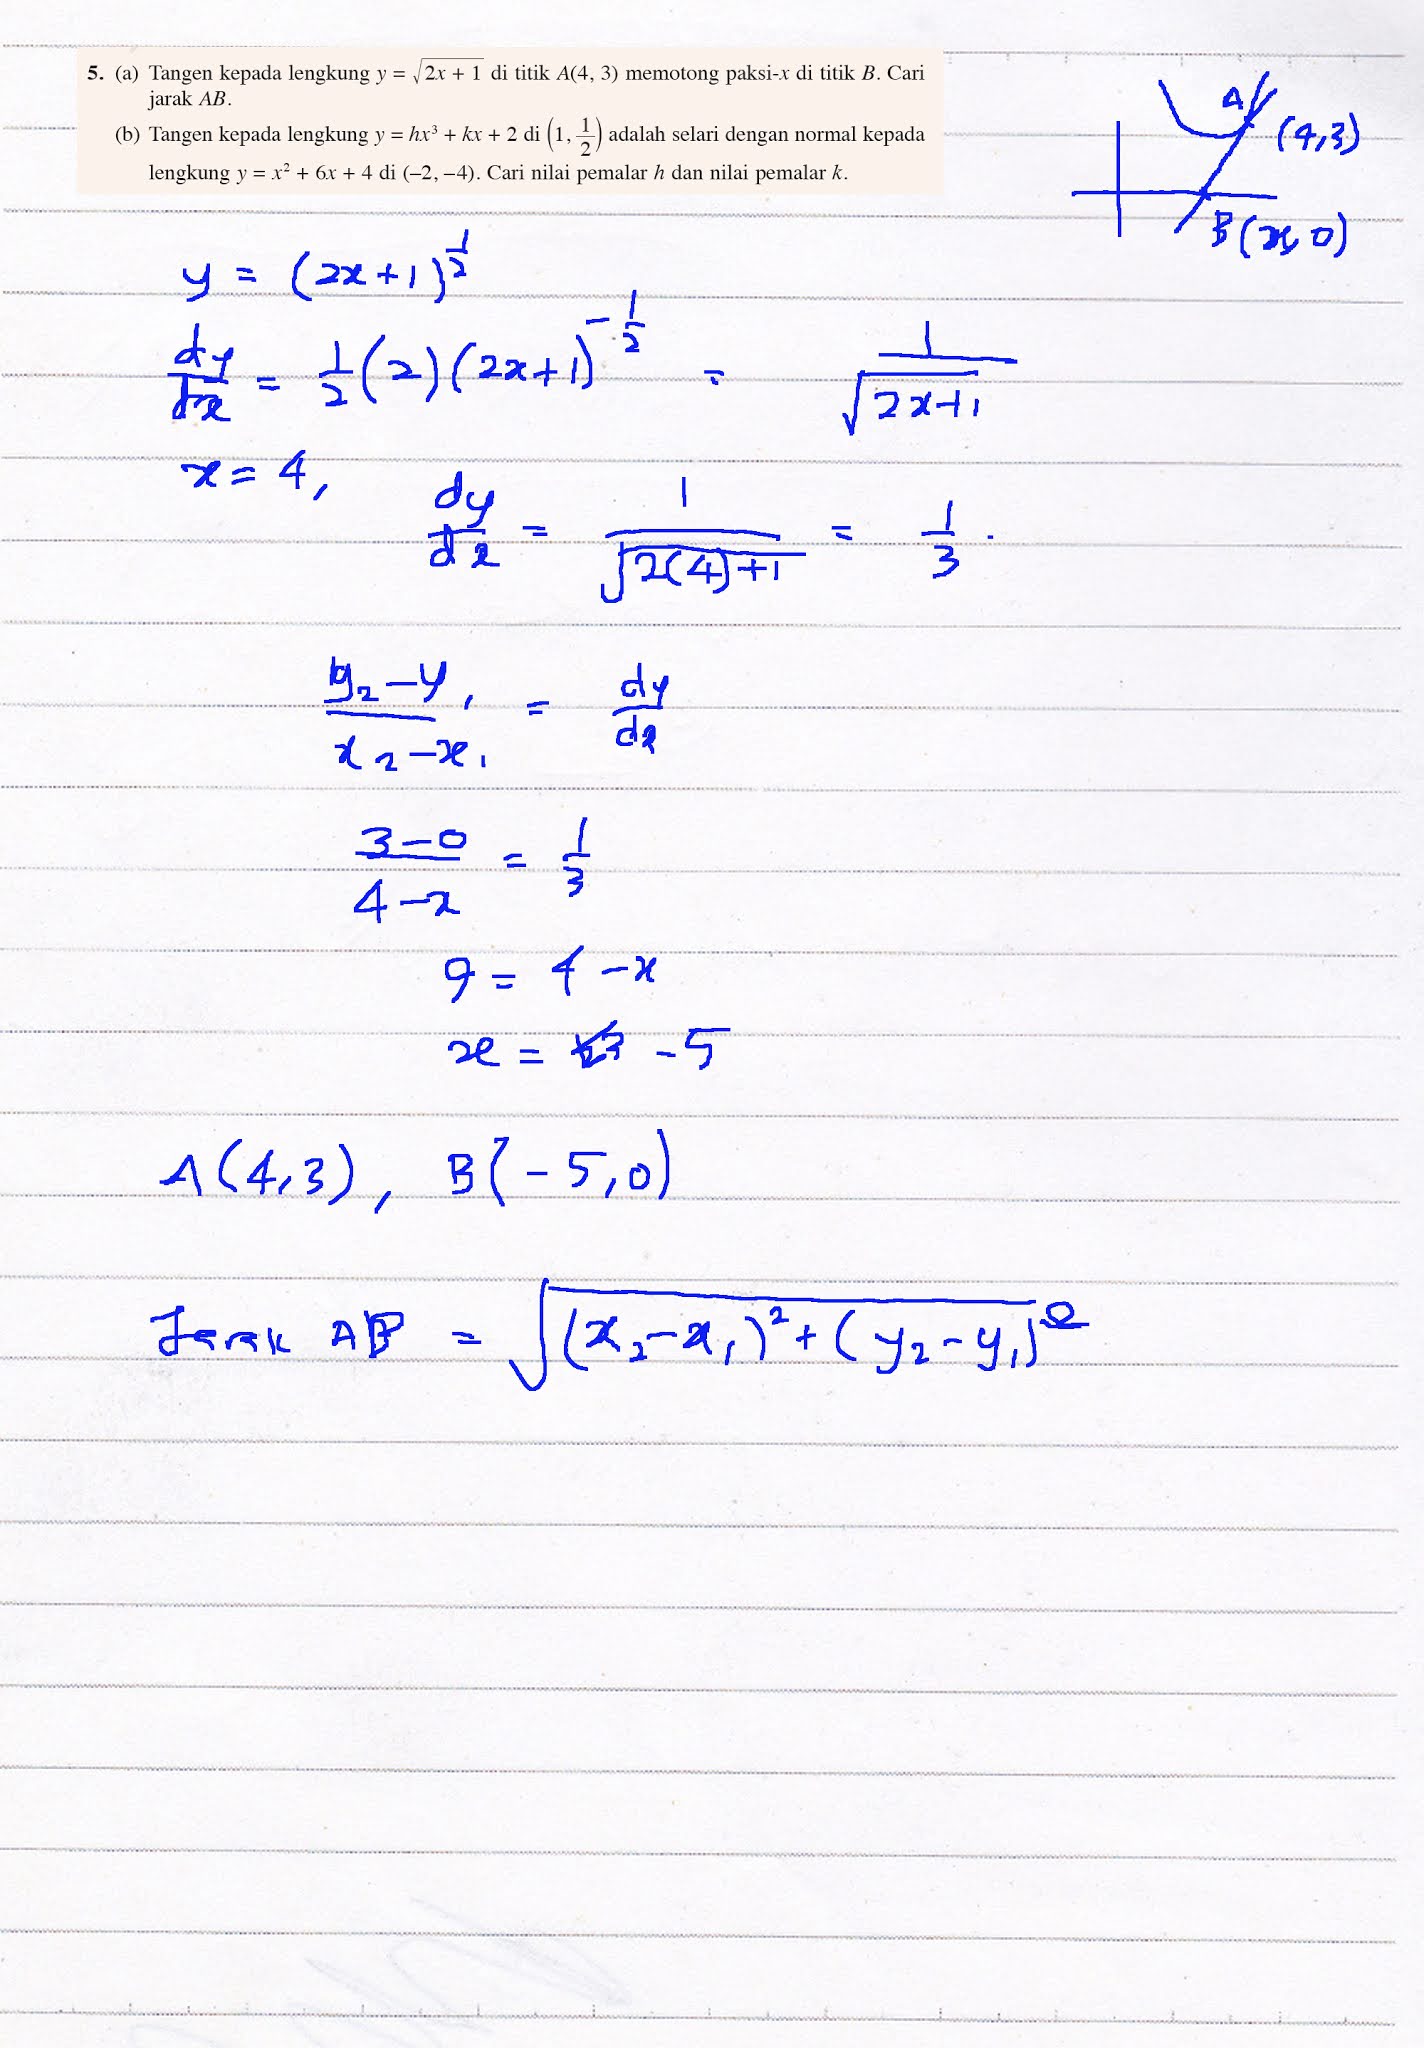 5. (a) Tangen kepada lengkung y = √(2x + 1) di titik A(4, 3) memotong paksi-x di titik B. Cari
jarak AB.
(b) Tangen kepada lengkung y = hx³ + kx + 2 di (1, 1/2) adalah selari dengan normal kepada
lengkung y = x² + 6x + 4 di (−2, −4). Cari nilai pemalar h dan nilai pemalar k.
A
(4,3)
B(x, 0)
y = (2x+1)^(1/2)
dy/dx = 1/2 (2)(2x+1)^(-1/2) = 1/√(2x+1)
x = 4, dy/dx = 1/√(2(4)+1) = 1/3.
(y₂ − y₁)/(x₂ − x₁) = dy/dx
(3 − 0)/(4 − x) = 1/3
9 = 4 − x
x = −5
A(4,3), B(−5,0)
Jarak AB = √((x₂ − x₁)² + (y₂ − y₁)²)